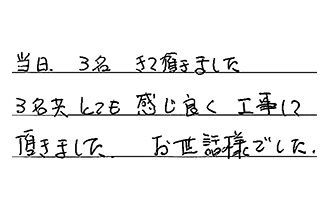 当日 3名 きて頂きました
3名共とても 感じ良く 工事して
頂きました. お世話様でした.